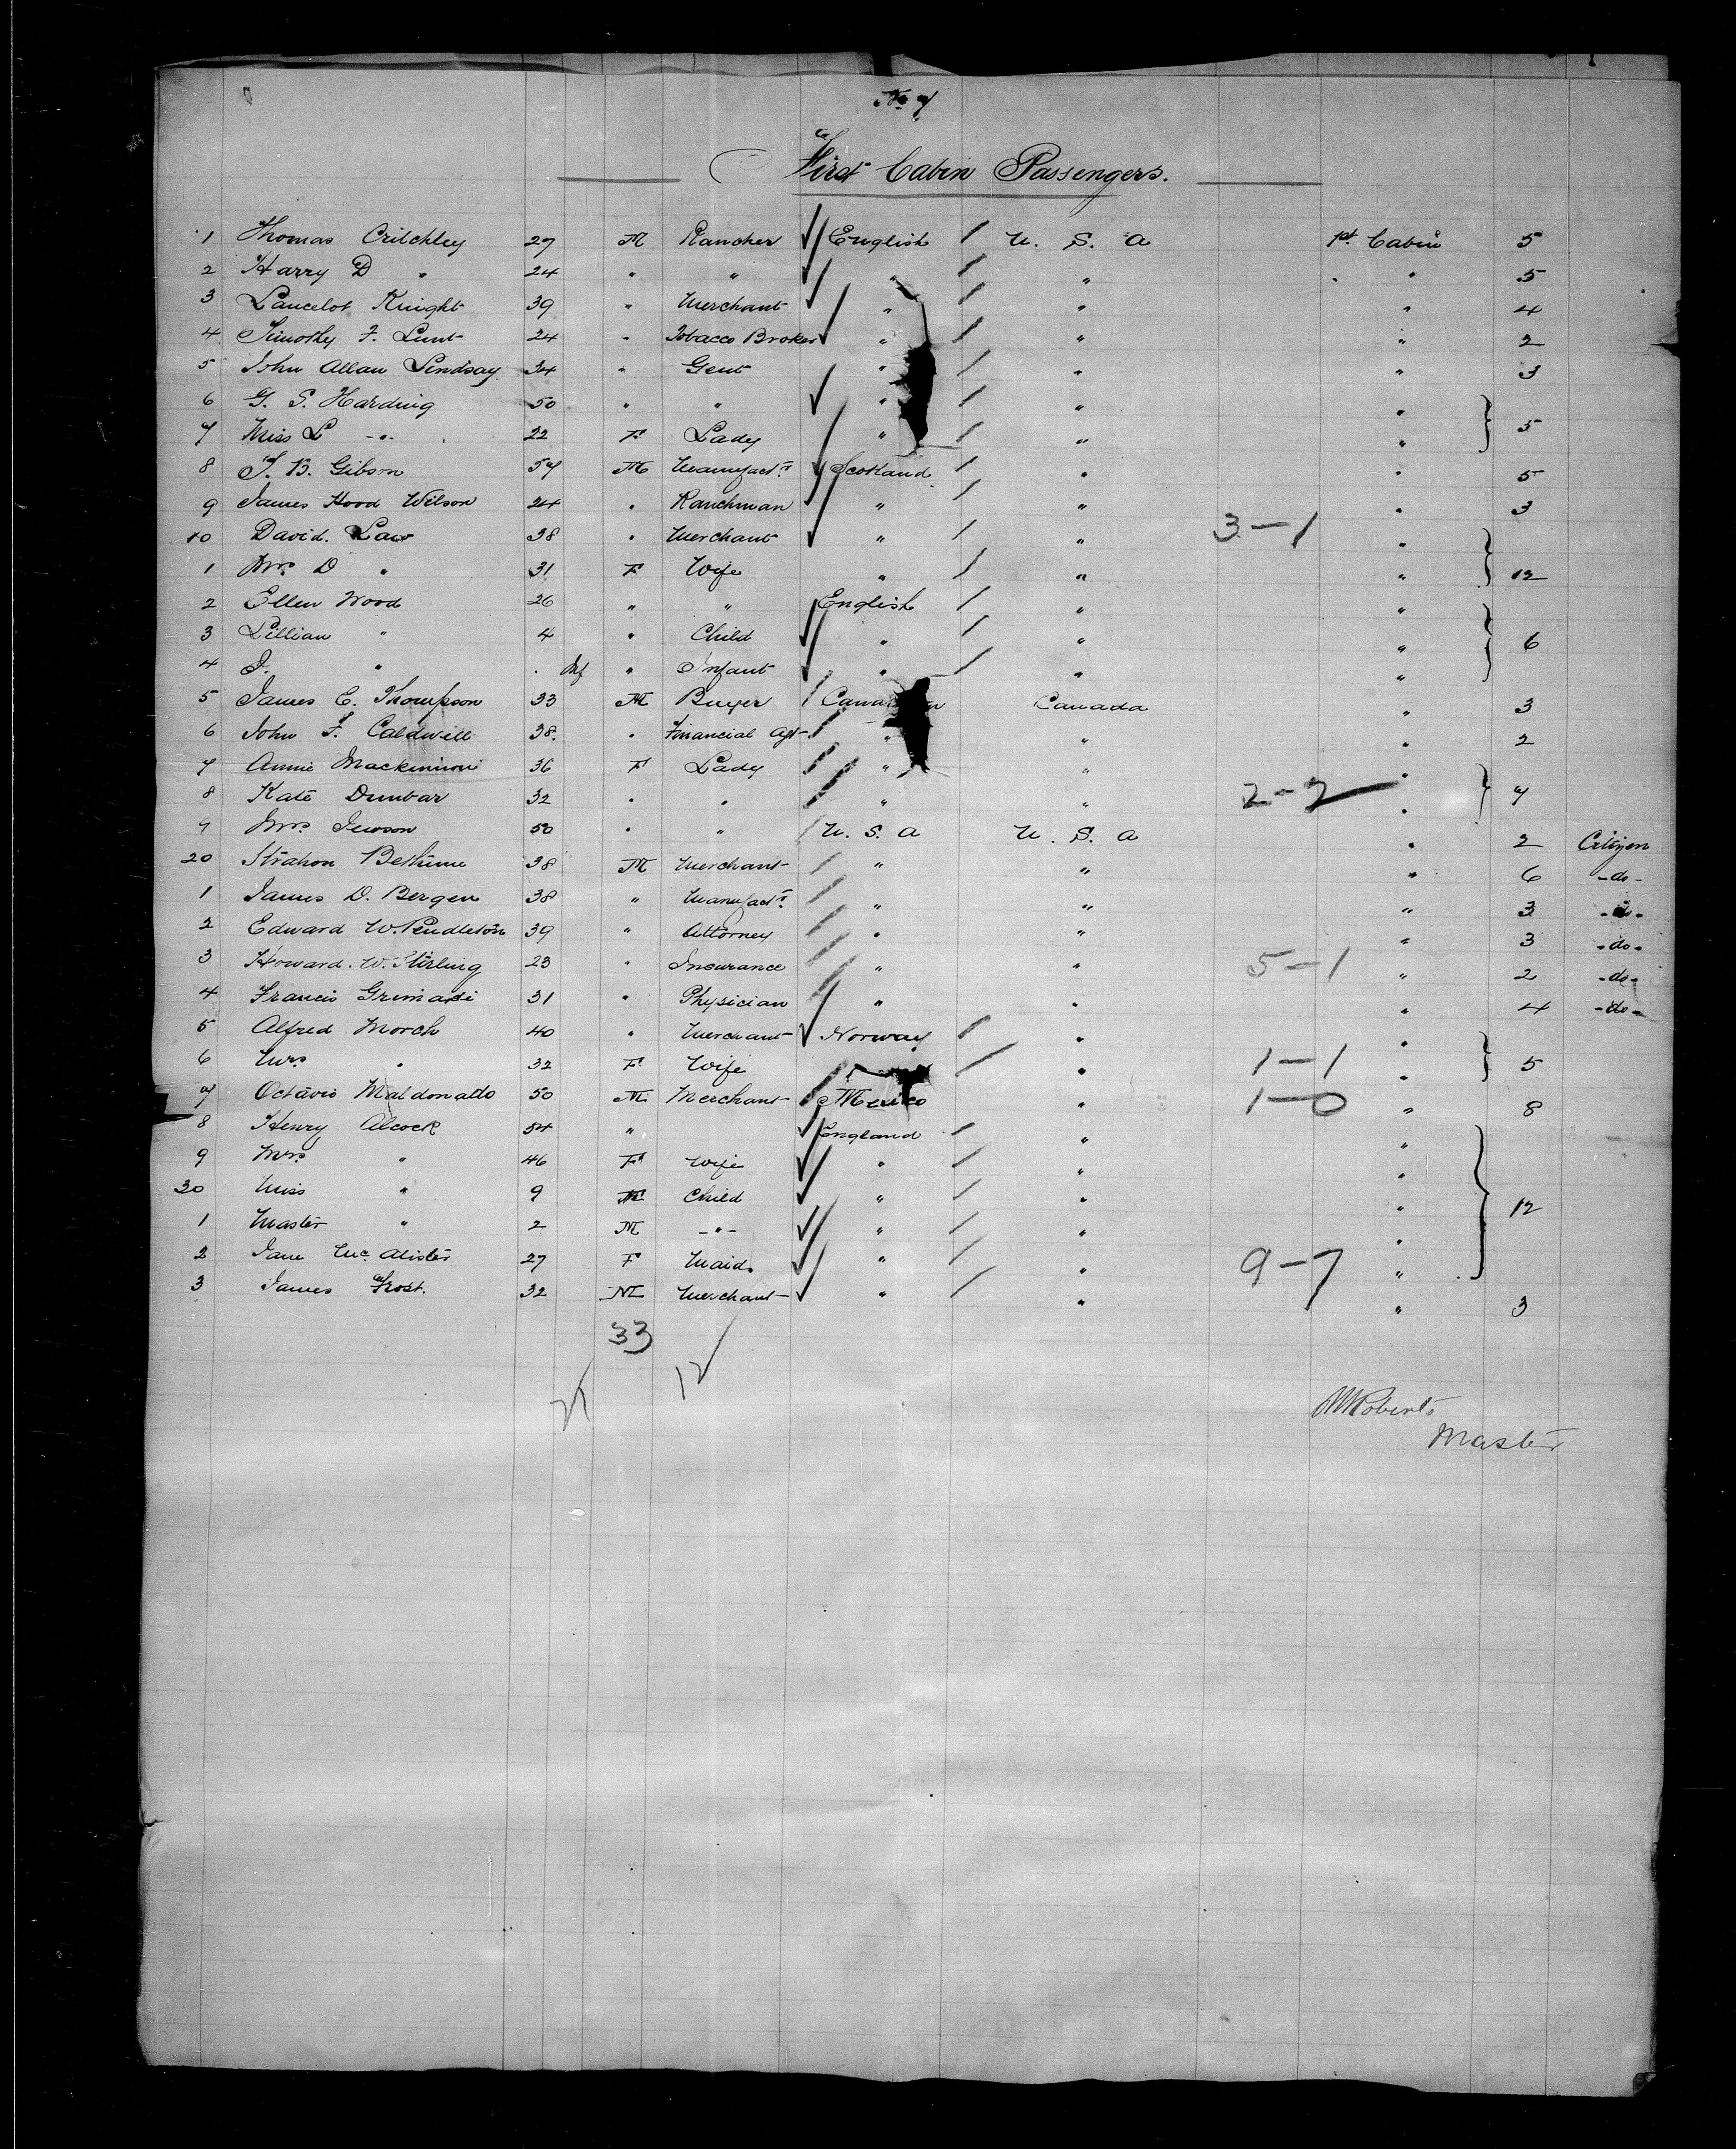 No 7
First Cabin Passengers.
1 Thomas Critchley 27 M Rancher English U. S. A 1st Cabin 5
2 Harry D " 24 " " " " " 5
3 Lancelot Knight 39 " Merchant " " " 4
4 Timothy F. Lunt 24 " Tobacco Broker " " " 2
5 John Allan Lindsay 34 " Gent " " " 3
6 G. S. Harding 50 " " " " "
7 Miss L -"- 22 F Lady " " " 5
8 J. B. Gibson 57 M Manufactr Scotland " " 5
9 James Hood Wilson 24 " Ranchman " " " 3
10 David. Law 38 " Merchant " " 3-1 "
1 Mrs D " 31 F Wife " " " 12
2 Ellen Wood 26 " " English " "
3 Lillian " 4 " Child " " " 6
4 " Inf " Infant " " "
5 James C. Thompson 33 M Buyer Canada " 3
6 John F. Caldwell 38. " Financial Agt " " " 2
7 Annie Mackinnon 36 F Lady " " "
8 Kate Dunbar 32 " " " " 2-2 " 7
9 Mrs 50 " " U. S. A U. S. A " 2 Citizen
20 Strahon Bethune 38 M Merchant " " " 6 -do-
1 James D. Bergen 38 " Manufactr " " " 3 -do-
2 Edward W. Pendleton 39 " Attorney " " " 3 -do-
3 Howard. W. Stirling 23 " Insurance " " 5-1 " 2 -do-
4 Francis 31 " Physician " " " 4 -do-
5 Alfred Morch 40 " Merchant Norway " "
6 Mrs " 32 F Wife " 1-1 " 5
7 Octavio Maldonatto 50 M Merchant Mexico " 1-0 " 8
8 Henry Alcock 54 " England " "
9 Mrs " 46 F Wife " " "
30 Miss " 9 F Child " " " 12
1 Master " 2 M -"- " " "
2 Jane McAlister 27 F Maid " " 9-7 "
3 James Frost. 32 M Merchant " " " 3
33
21 12
Roberts
Master